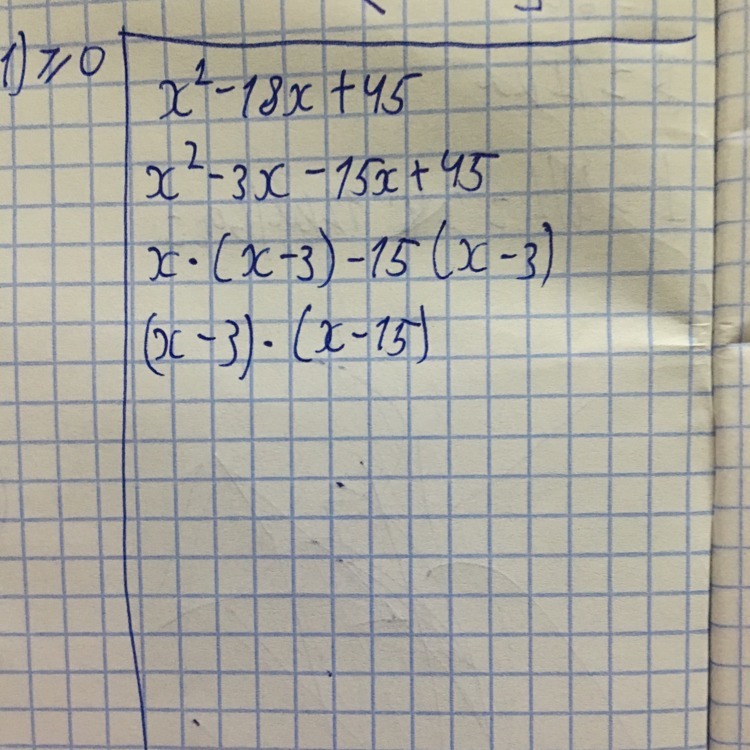 1) ⩾ 0
x² - 18x + 45
x² - 3x - 15x + 45
x · (x - 3) - 15 (x - 3)
(x - 3) · (x - 15)